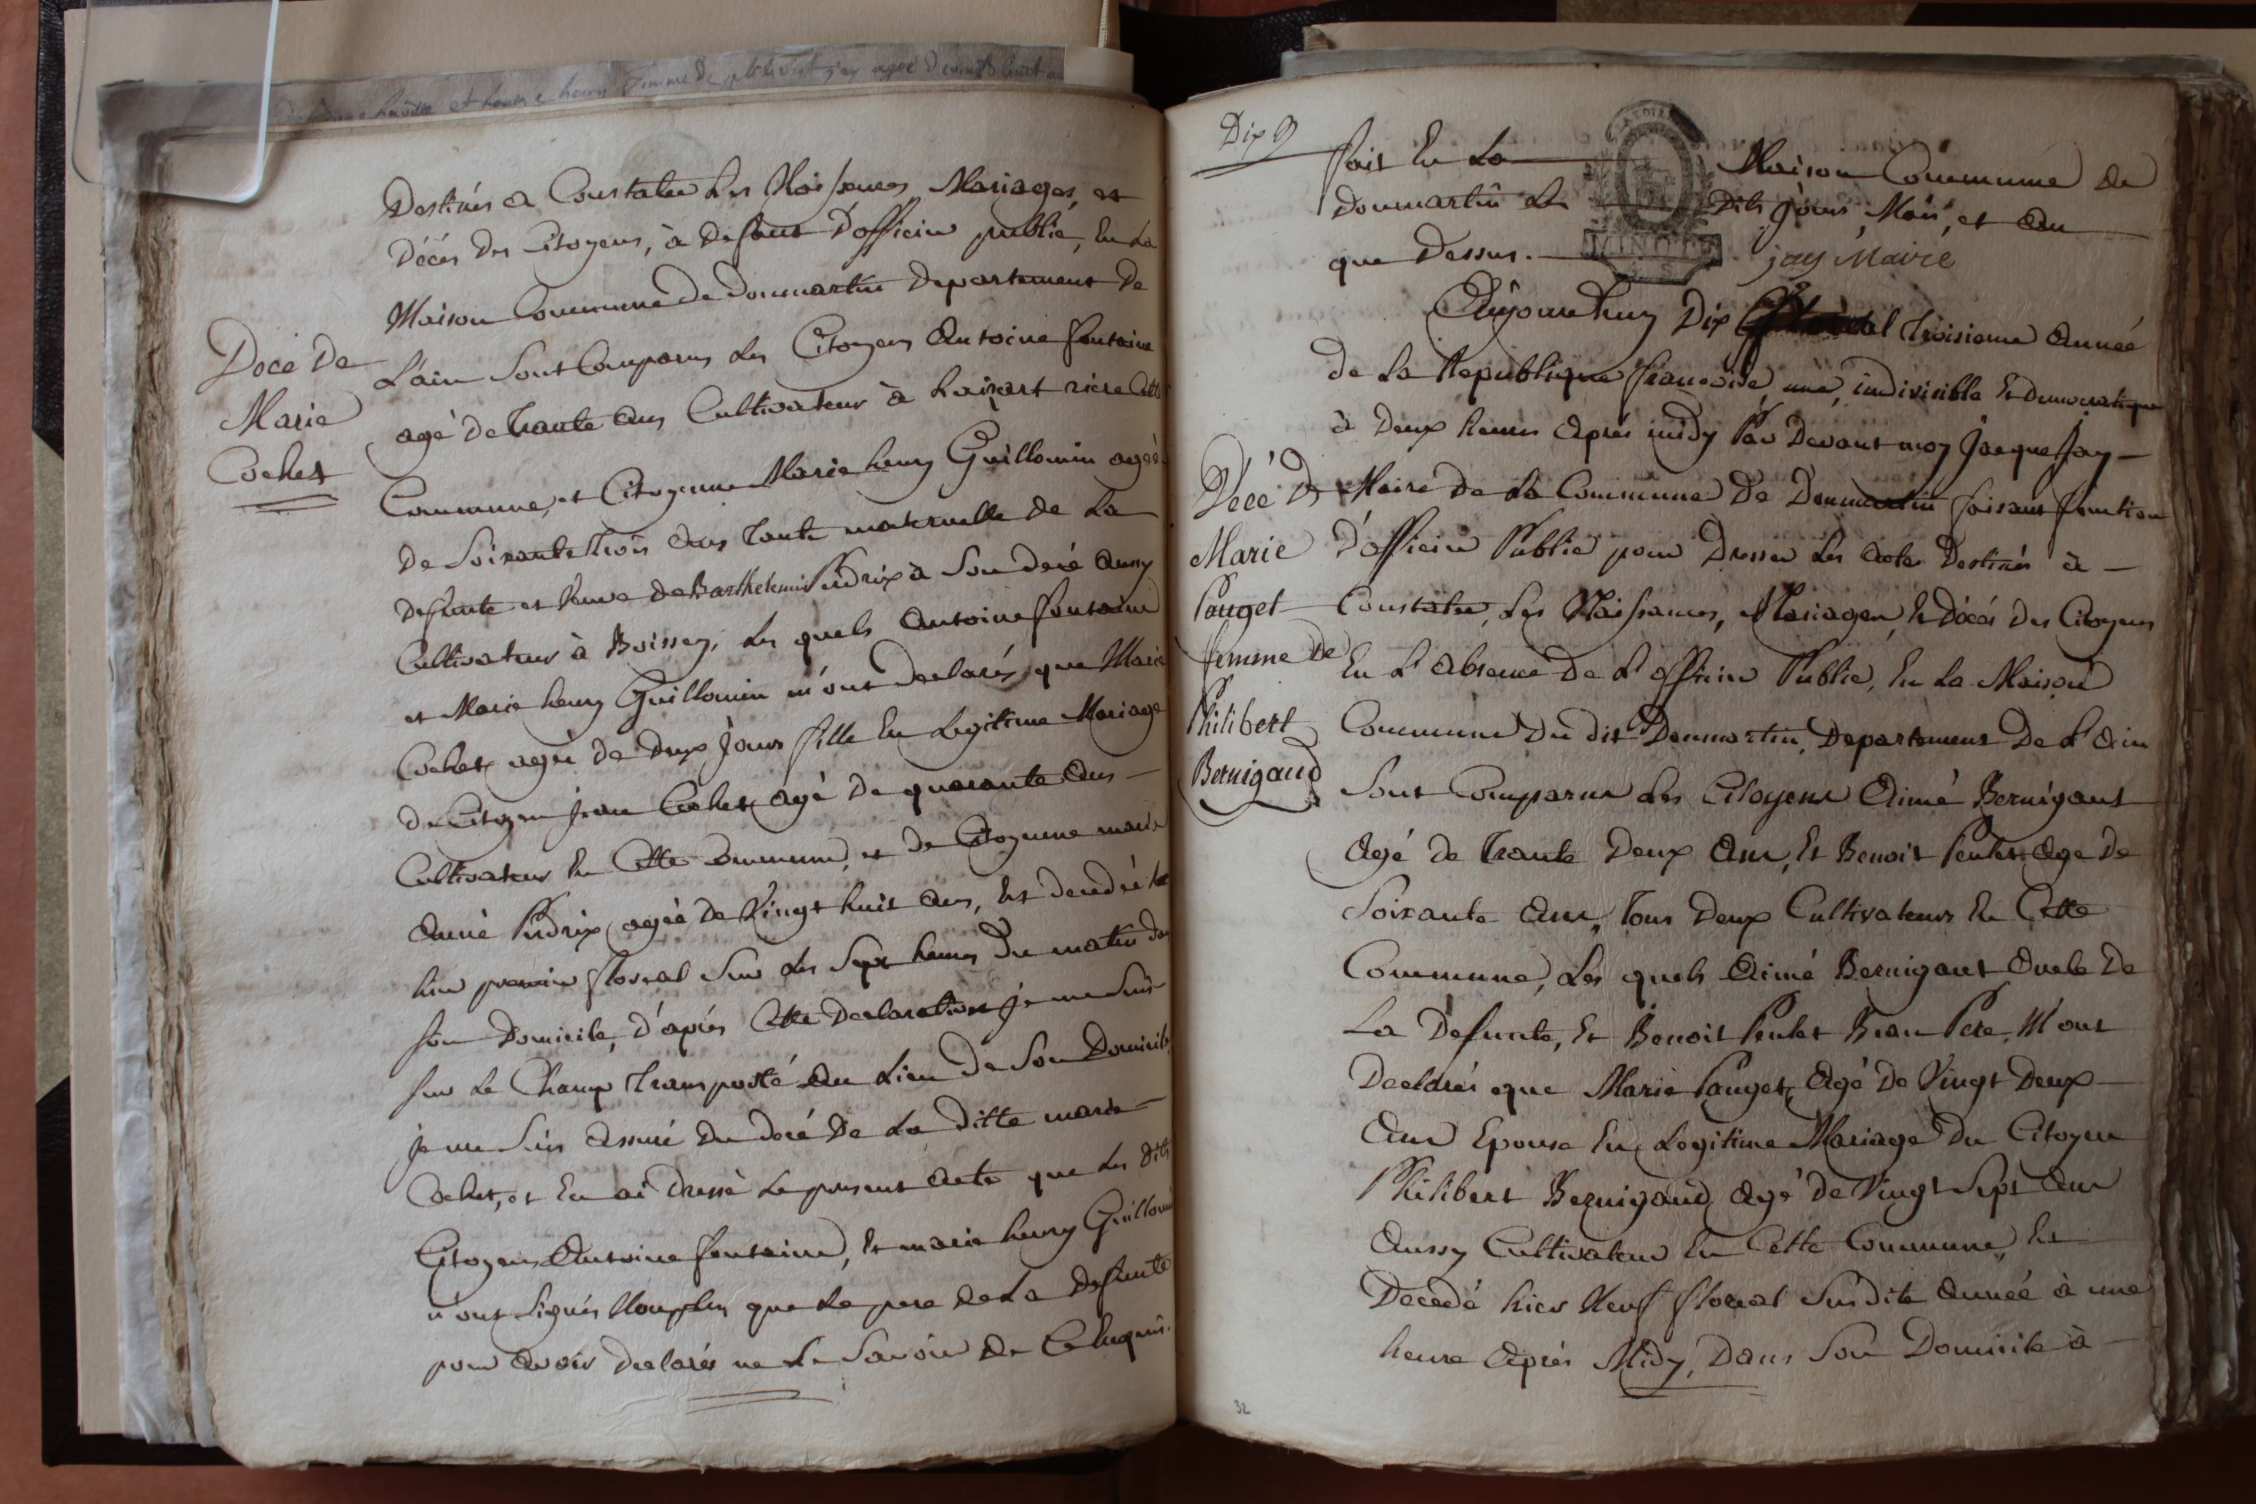 Destinés a Constater Les Naissances, Mariages, et
Décés des Citoyens, à defaut D'officier public, En La
Maison Commune de Donmartin Departement De
L'ain Sont Comparus Les Citoyens Antoine fontaine
agé de Trante ans Cultivateur à riere Cette
Commune, et Citoyenne Marie henry Guillomin agée
de Soixante Trois ans Tante maternelle de La
defunte et veuve de Barthelemis Perdrix à Son décé aussy
Cultivateur à Boissey, Les quels Antoine fontaine
et Marie henry Guillomin m'ont declarés que Marie
Cochet agée de Deux Jours fille En Legitime Mariage
du Citoyen Jean Cochet agé De quarante ans
Cultivateur En Cette Commune, et de Citoyenne marie
Aimé Perdrix agée de Vingt huit ans, Est
hier premier floreal Sur Les Sept heures Du matin dans
Son Domicile, d'apiés Cette Declaration je me Suis
Sur Le Champ Transporté Au Lieu de Son Domicile,
je me Suis assuré Du décé De La ditte marie
Cochet, et En ai Dressé Le present acte que Les dits
Citoyens Antoine fontaine, Et marie henry Guillomin
n'ont Signés Nomplus que Le pere de La defunte
pour avoir declarés ne Le Savoir De Ce Enquis.
Décé De
Marie
Cochet
Dix 9
fait En La Maison Commune de
Donmartin Les Dits Jours, Mois, et an
que Dessus. jay Maire
MINUTE
Aujourdhuy Dix Troisieme Année
de La Republique francoise, une, indivisible Et democratique
à Deux heures Après midy Par Devant moy Jacque Jay
Maire de La Commune De Donmartin faisant fonction
D'officier Public pour Dresser Les Actes Destinés à
Constater, Les Naissances, Mariages, Et Décés Des Citoyens
En L'absence De L'officier Public, En La Maison
Commune Du dit Donmartin, Departement De L'Ain
Sont Comparus Les Citoyens Aimé Bernigaut
Agé de Trante Deux Ans, Et Benoit Pentet Age de
Soixante Ans, Tous Deux Cultivateurs En Cette
Commune, Les quels Aimé Bernigaut Oncle De
La Defunte, Et Benoit Pentet Beau Pere, M'ont
Declarés que Marie Pauget, Agé De Vingt Deux
Ans Epouse En Legitime Mariage Du Citoyen
Philibert Bernigaud Agé de Vingt Sept Ans
Aussy Cultivateur En Cette Commune, Est
Decedé hier Neuf floreal Susdite Année à une
heure Après Midy, Dans Son Domicile à
Décé De
Marie
Pauget
femme De
Philibert
Bernigaud
32